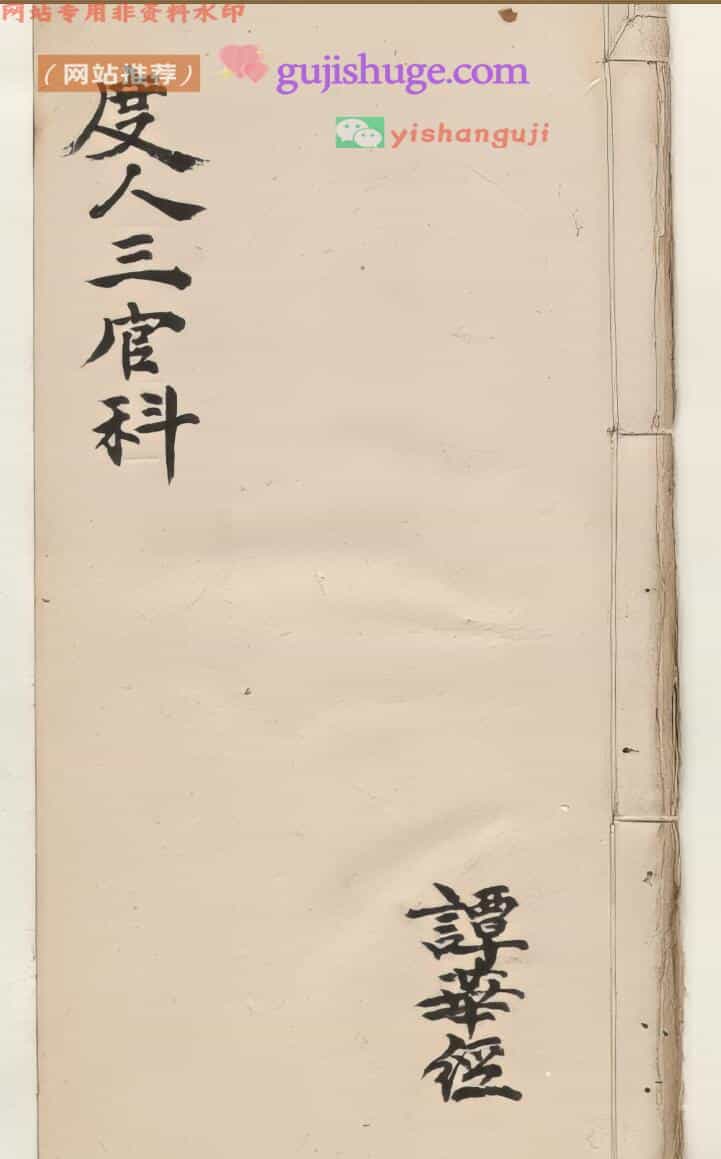 网站专用非资料水印
（网站推荐）
gujishuge.com
yishanguji
度人三官科
譚華經